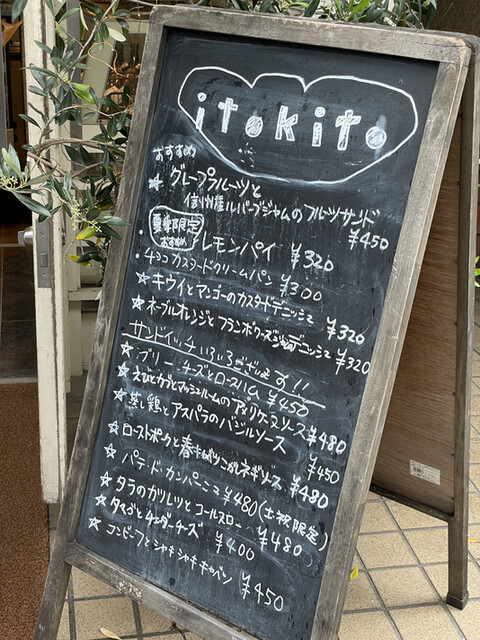 itokito
おすすめ
☆ グレープフルーツと
信州産ルバーブジャムのフルーツサンド
¥450
夏季限定
おすすめ
・レモンパイ ¥320
・チョコカスタードクリームパン ¥300
☆ キウイとマンゴーのカスタードデニッシュ ¥320
☆ ネーブルオレンジとフランボワーズジャムデニッシュ ¥320
サンドイッチいろいろございます!!
☆ ブリーチーズとロースハム ¥450
☆ えびとホタテとマッシュルームのアメリケーヌソース ¥480
☆ 蒸し鶏とアスパラのバジルソース ¥450
☆ ローストポークと春キャベツ ネギソース ¥480
☆ パテ・ド・カンパーニュ ¥480 (土祝限定)
☆ タラのカツレツとコールスロー ¥480
☆ タマゴとチェダーチーズ ¥400
☆ コンビーフとシャキシャキキャベツ ¥450